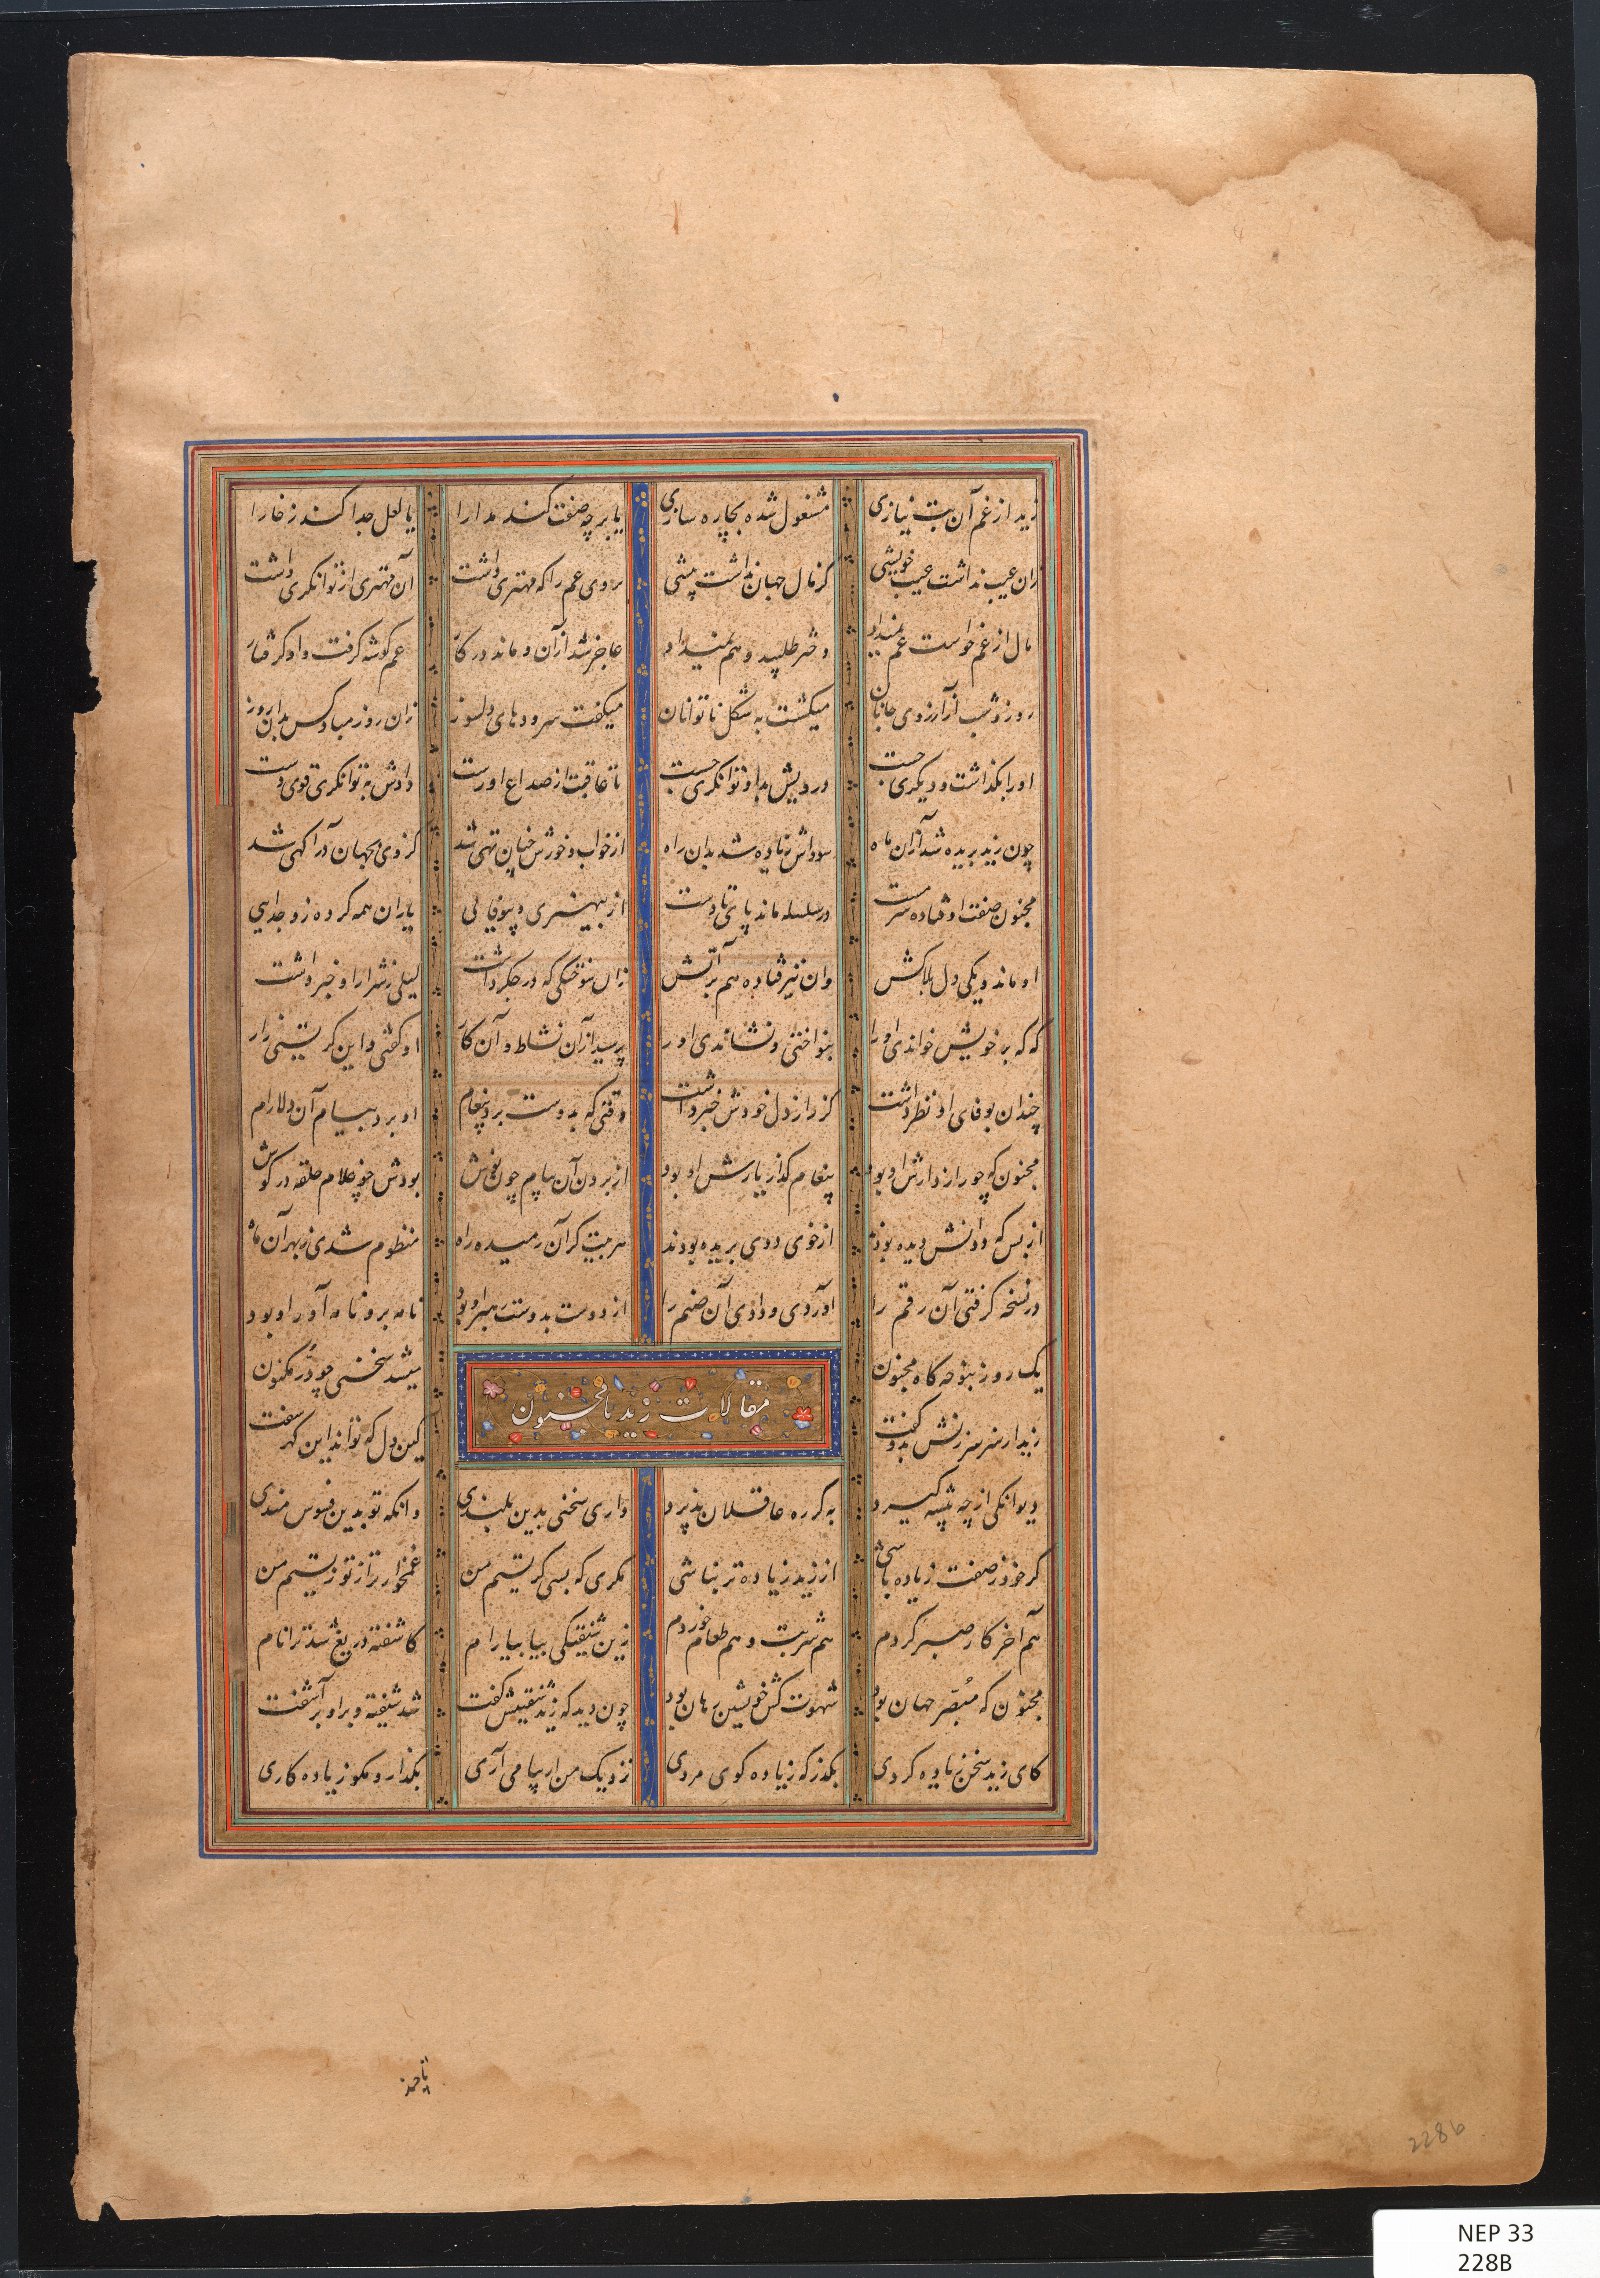 زید از غم آن بت نیازی مشغول شده بچاره سازی یا بر چه صفت کند مدارا یا لعل جدا کند ز خارا
زان عیب نداشت عیب خویشی کز مال جهان نداشت پیشی بر وی عم را که مهتری داشت آن مهتری از توانگری داشت
مال از غم خواست عم نمیداد دختر طلبید و هم نمیداد عاجز شد از آن و ماند در کار عم گوشه گرفت و او گرفتار
روز و شب از آرزوی جانان میگشت به شکل ناتوانان میگفت سرودهای دلسوز زان روز مباد کس بدان روز
او را بگذاشت و دیگری جست درویش بد او توانگری جست تا عاقبت از صداع او رست دادش به توانگری قوی دست
چون زید بریده شد از آن ماه سوداش زیاده شد بدان راه از خواب و خورش چنان تهی شد کز وی بجهان در آگهی شد
مجنون صفت اوفتاده سرمست در سلسله ماند پای تا دست از بیهنری و بیوفایی یاران همه کرده زو جدایی
او ماند و یکی دل بلاکش وان نیز فتاده هم بر آتش زان سوختگی که در جگر داشت لیلی ز شرار او خبر داشت
که که بر خویش خواندی او را بنواختی و نشاندی او را پرسید از آن نشاط و آن کار او گفتی و این گریستی زار
چندان بوفای او نظر داشت کز راز دل خودش خبر داشت وقتی که بدوست برد پیغام او برد پیام آن دلارام
مجنون که چو رازدارش او بود پیغام گذار یارش او بود از بردن آن پیام چون نوش بودش چو غلام حلقه در گوش
از بس که ددانش دیده بودند از خوی ددی بریده بودند هر بیت کز آن رمیده راه منظوم شدی ز بهر آن ماه
در نسخه گرفتی آن رقم را آوردی و دادی آن صنم را از دوست بدوست رهبر او بود نامه بر و نامه آور او بود
یک روز بنوحه گاه مجنون میشد سخنی چو در مکنون
مقالات زید با مجنون
زید از سر سرزنش بدو گفت کین دل که تواند این گهر سفت
دیوانگی از چه پیشه گیرد به گر ره عاقلان پذیرد داری سخنی بدین بلندی وانگه تو بدین فسوس مندی
گر خود ز صفت زیاده باشی از زید زیاده تر نباشی بگری که بسی گریستم من غمخوارتر از تو زیستم من
هم آخر کار صبر کردم هم شربت و هم طعام خوردم زین شیفتگی بیا بیارام کاشفته دریغ شد ترا نام
مجنون که مبصر جهان بود شهوت کش خویشتن رهان بود چون دید که زید شیفتیش گفت شد شیفته و بر او بر آشفت
کای زید سخن زیاده کردی بگذر که زیاده گوی مردی نزدیک من ار پیامی آری بگذار و مگو زیاده کاری
228b
NEP 33
228B